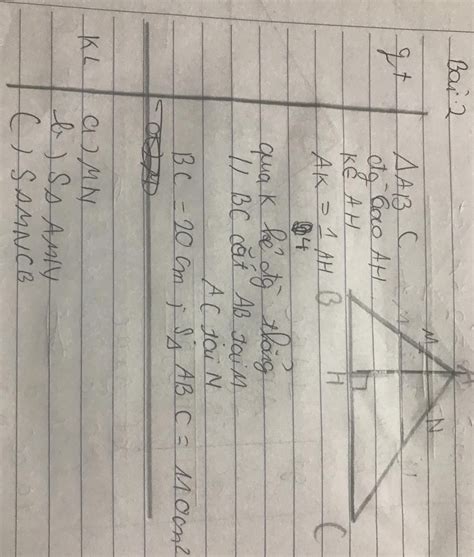 Bài 2
gt
ΔABC
đg cao AH
K∈ AH
AK = 1/4 AH
qua K kẻ đg thẳng
// BC cắt AB tại M
AC tại N
BC = 20 cm, SΔ ABC = 110cm²
KL
a) MN
b) SΔ AMN
c) SΔMNCB
M
N
B
H
C